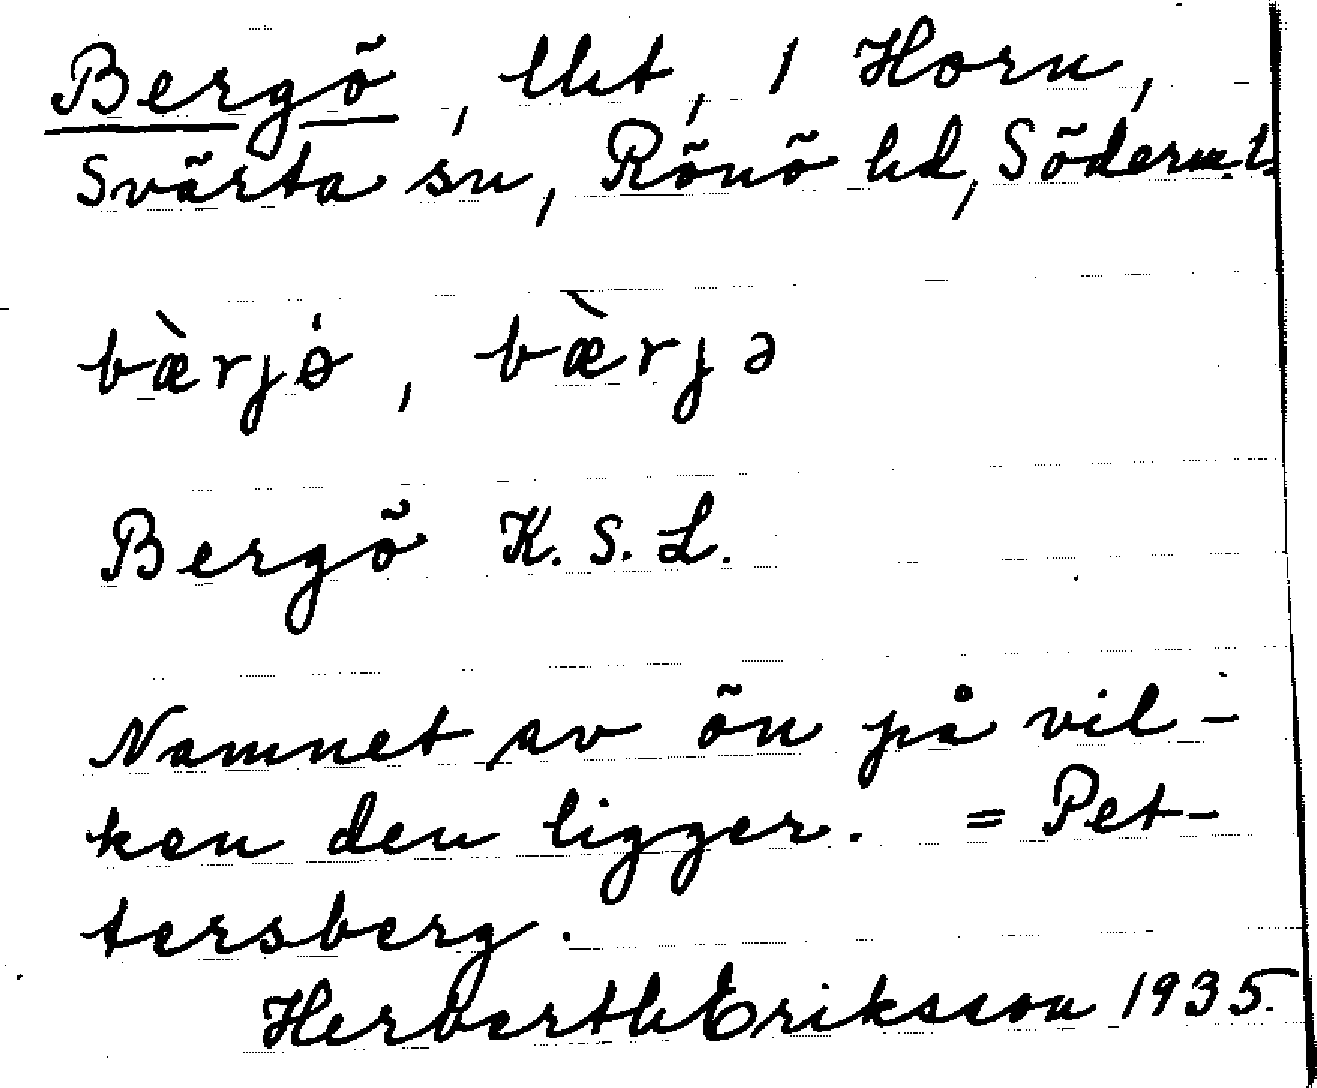 Bergö, lht, 1 Horn,
Svärta sn, Rönö hd, Söderm.l.
bæ̀rjö̀, bæ̀rjə
Bergö K. S. L.
Namnet av ön på vil-
ken den ligger. = Pet-
tersberg.
Herberth Eriksson 1935.